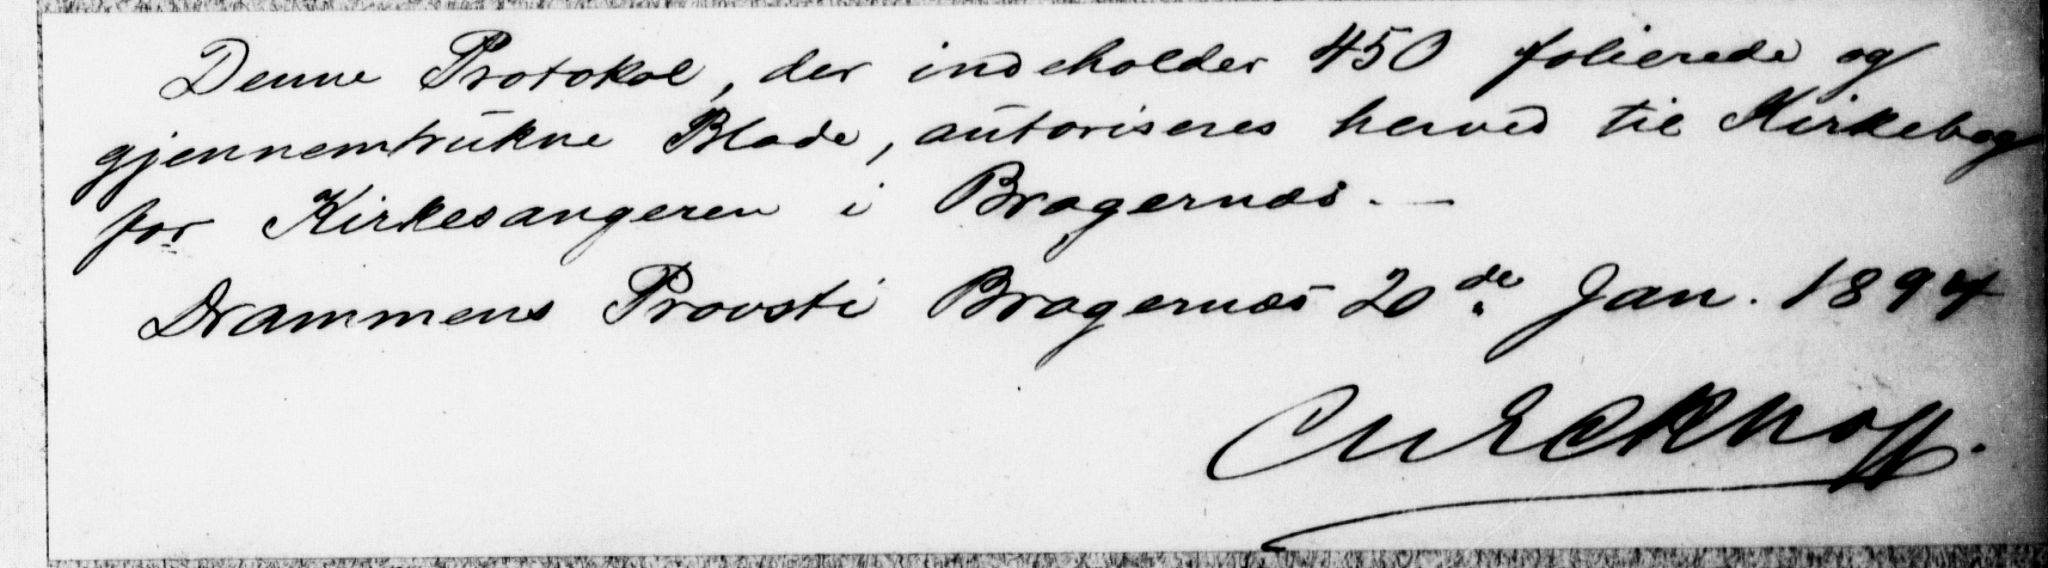 Denne Protokol, der indeholder 450 folierede og
gjennemtrukne Blade, autoriseres herved til Kirkebog
for Kirkesangeren i Bragernæs. —
Drammens Provsti Bragernæs 20de Jan. 1894
Eckhoff.